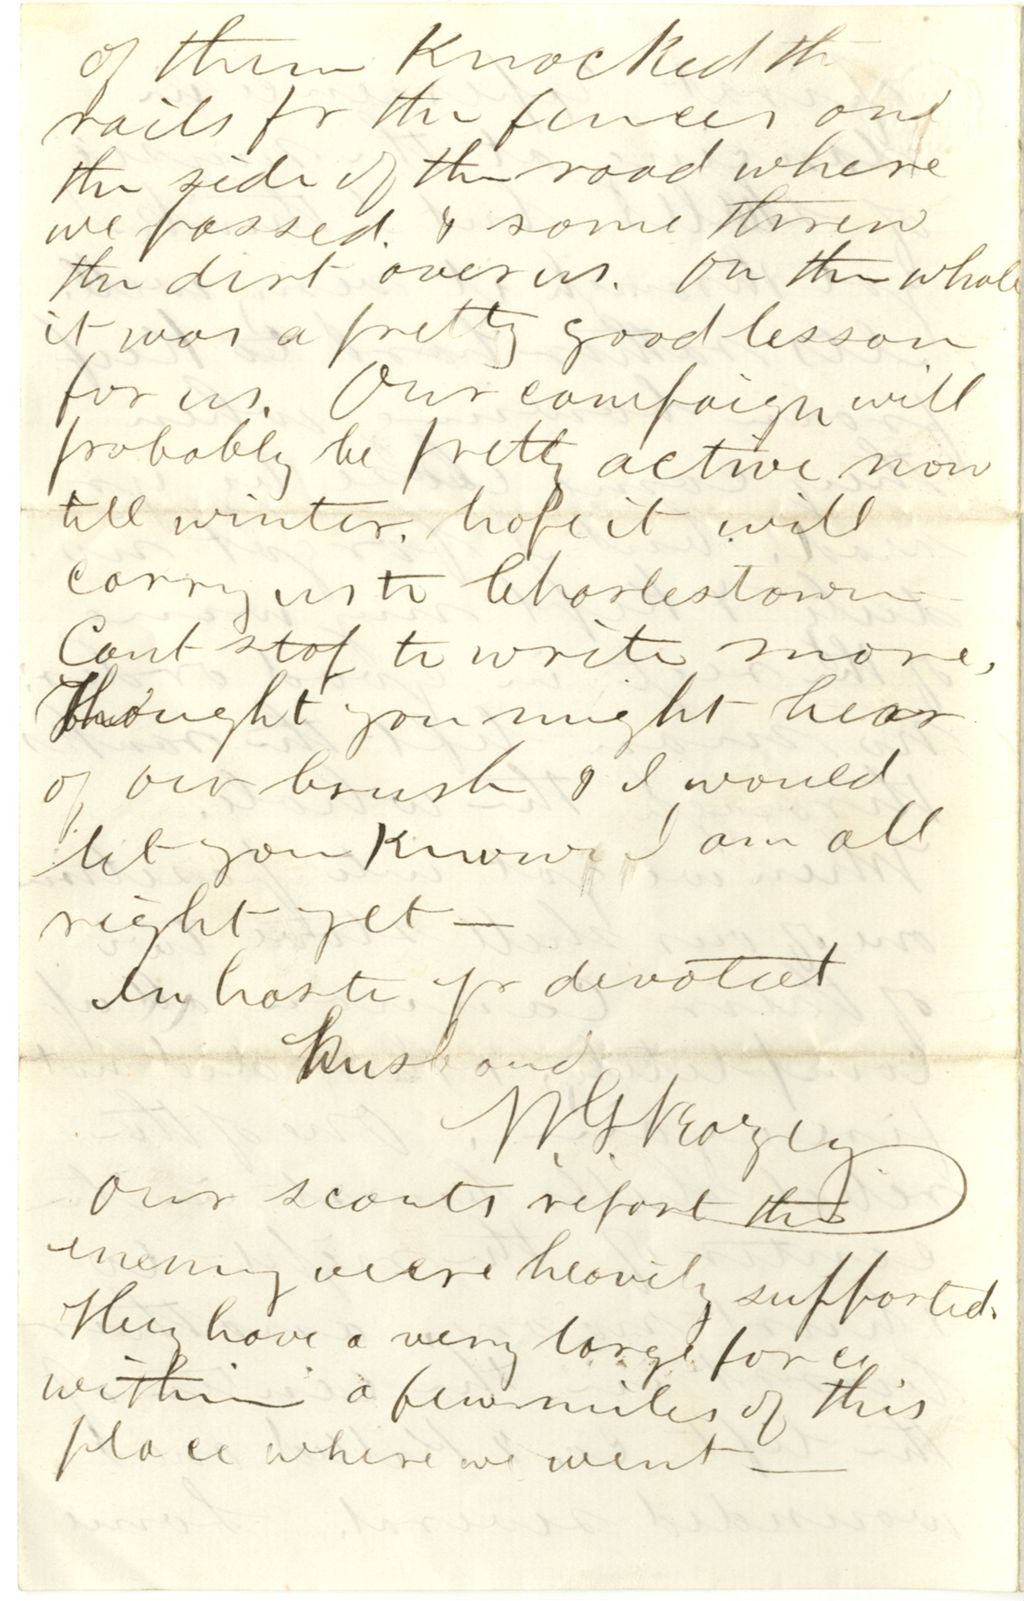 of them Knocked th
rails fr the fences and
the side of the road where
we passed. & some threw
the dirt over us. On the whole
it was a pretty good lesson
for us. Our campaign will
probably be pretty active now
till winter. hope it will
carry us to Charlestown
Cant stop to write more,
Thought you might hear
of our brush & I would
let you know I am all
right yet —
In haste yr devoted
Husband
W G Veazey
Our scouts report the
enemy were heavily supported.
They have a very large force
within a few miles of this
place where we went —